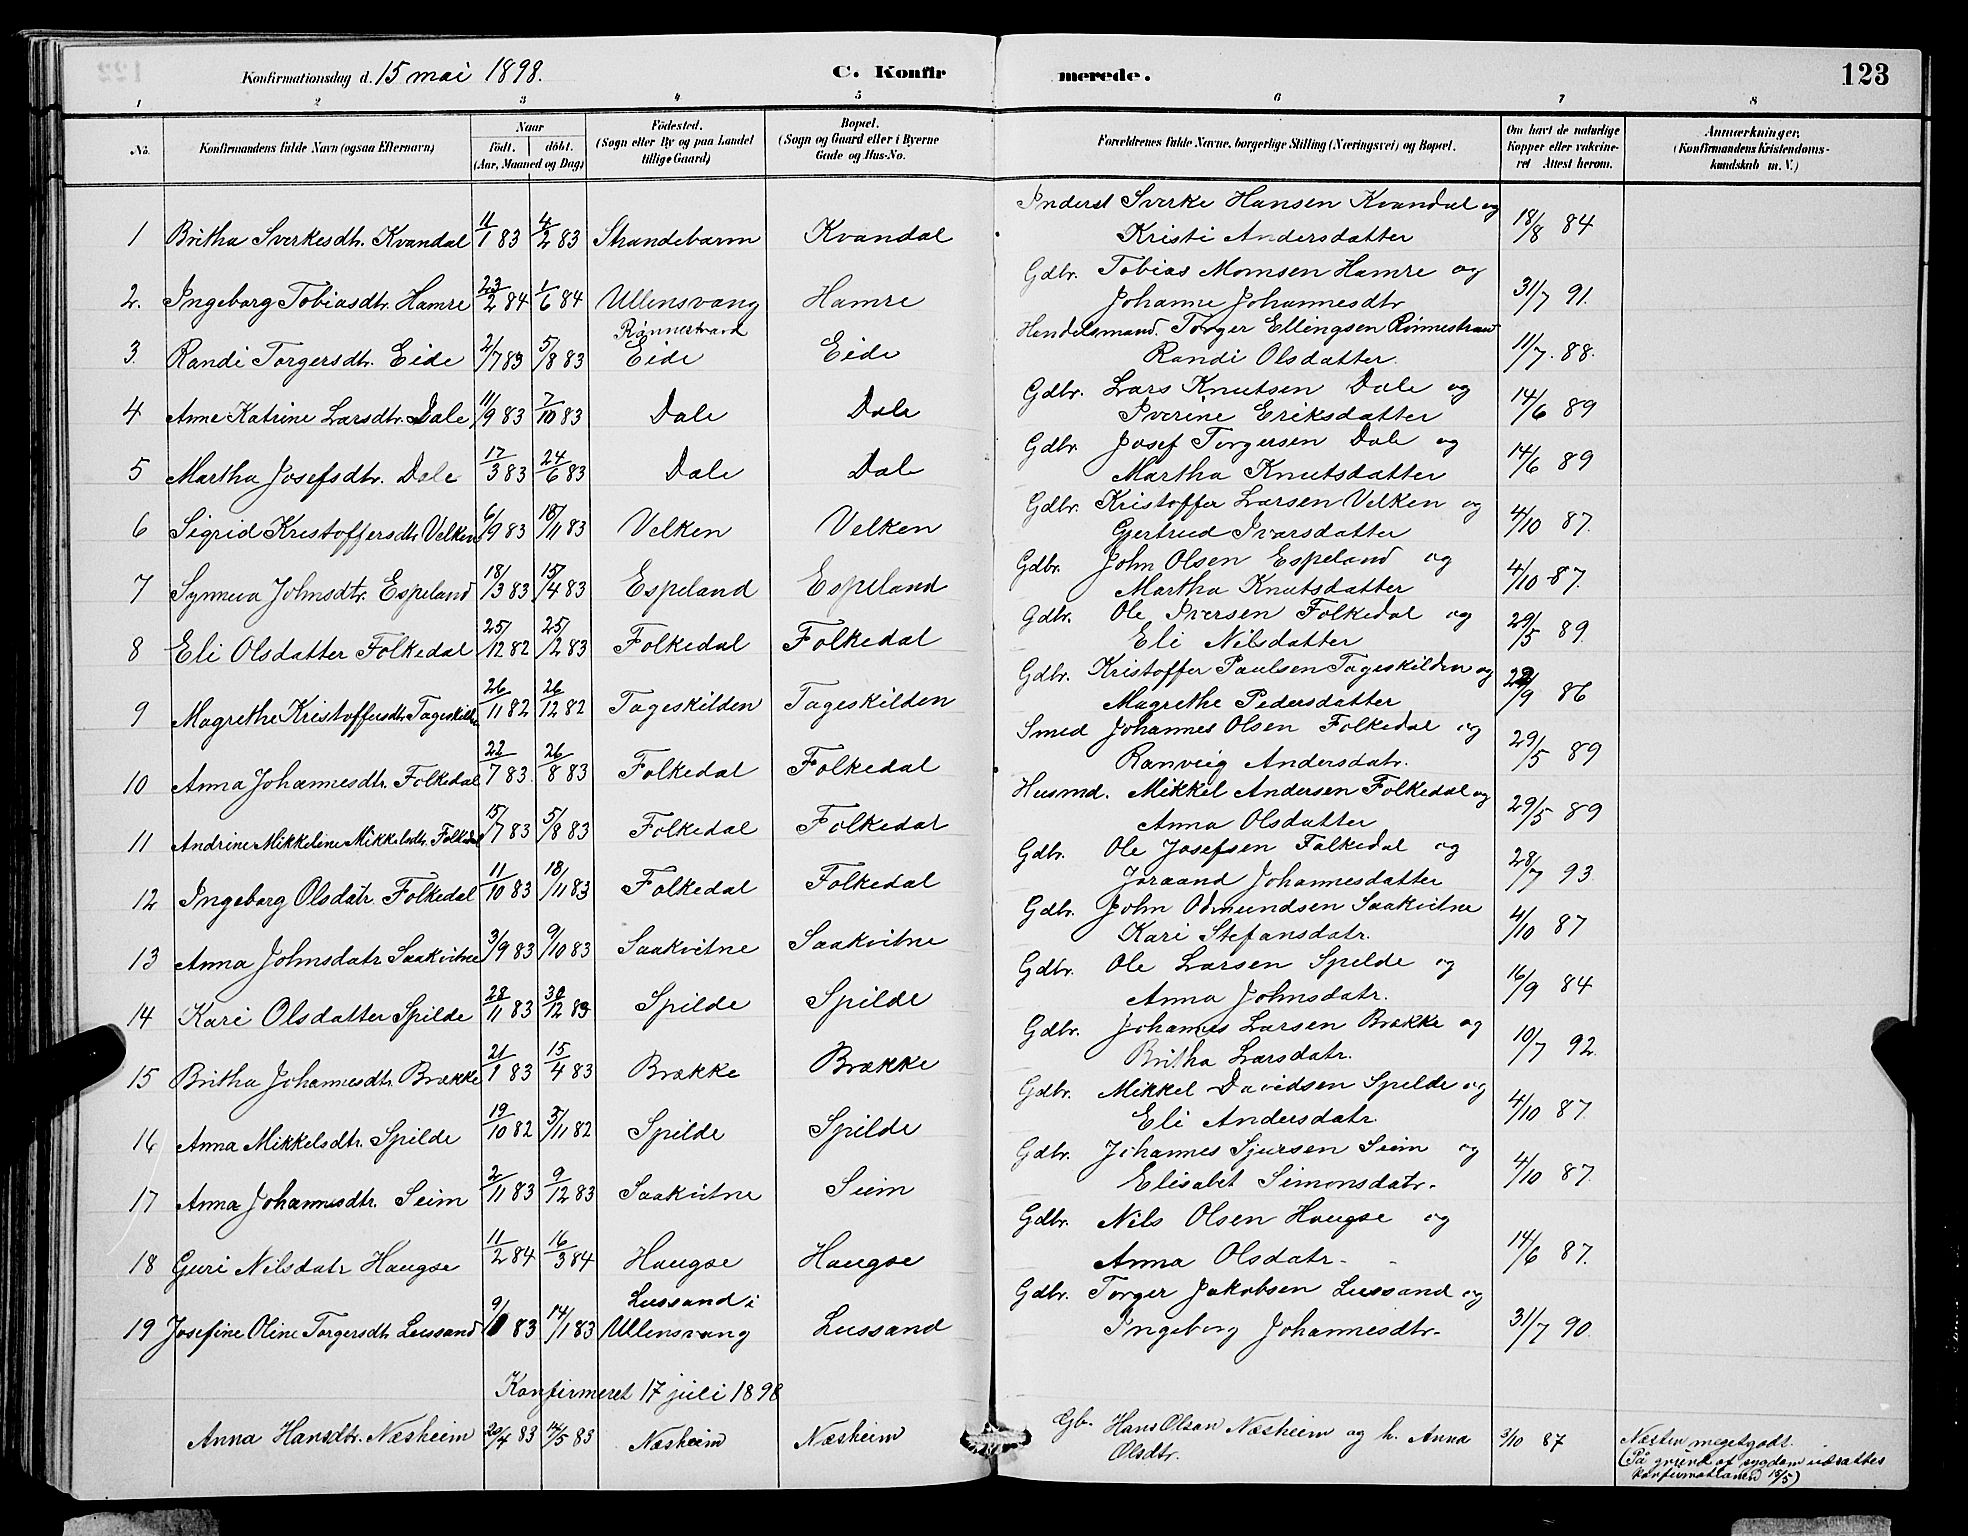 Konfirmationsdag d. 15 mai 1898. C. Konfirmerede. 123
1 2 3 4 5 6 7 8
No. Konfirmandens fulde Navn (ogsaa Efternavn) Naar födt. döbt. (Aar, Maaned og Dag) Födested. (Sogn eller By og paa Landet tillige Gaard) Bopæl. (Sogn og Gaard eller i Byerne Gade og Hus-No. Forældrenes fulde Navne, borgerlige Stilling (Næringsvei) og Bopæl. Om havt de naturlige Kopper eller vakcineret Attest herom. Anmærkninger, (Konfirmandens Kristendomskundskab m. V.)
1 Britha Sverkesdtr. Kvandal 11/1 83 4/2 83 Strandebarm Kvandal Inderst Sverke Hansen Kvandal og 18/8 84
Kristi Andersdatter
2. Ingeborg Tobiasdtr. Hamre 23/2 84 1/6 84 Ullensvang Hamre Gdbr. Tobias Momsen Hamre og 31/7 91.
Johanne Johannesdtr
3. Randi Torgersdtr. Eide 2/7 83 5/8 83 Rønnestrand Eide Eide Handelsmand. Torger Ellingsen Rønnestrand 11/7. 88.
Randi Olsdatter.
4 Anne Katrine Larsdtr. Dale 11/9 83 7/10 83 Dale Dale Gdbr. Lars Knutsen Dale og 14/6 89
Iverine Eriksdatter
5 Martha Josefsdtr. Dale 17/3 83 24/6 83 Dale Dale Gdbr. Josef Torgersen Dale og 14/6 89
Martha Knutsdatter
6 Sigrid Kristoffersdtr Velken 6/9 83 18/11 83 Velken Velken Gdbr. Kristoffer Larsen Velken og 4/10 87.
Gjertrud Ivarsdatter
7 Synneva Johnsdtr. Espeland 18/3 83 15/4 83 Espeland Espeland Gdbr. John Olsen Espeland og 4/10 87.
Martha Knutsdatter
8 Eli Olsdatter Folkedal 25/12 82 25/2 83 Folkedal Folkedal Gdbr. Ole Iversen Folkedal og 29/5 89.
Eli Nilsdatter
9 Magrethe Kristoffersdtr Tageskilden 26/11 82 26/12 82 Tageskilden Tageskilden Gdbr. Kristoffer Paulsen Tageskilden og /9 86
Magrethe Pedersdatter
10 Anna Johannesdtr. Folkedal 22/7 83 26/8 83 Folkedal Folkedal Smed Johannes Olsen Folkedal og 29/5 89
Ranveig Andersdatr.
11 Andrine Mikkeline Mikkelsdtr. Folkedal 15/7 83 5/8 83 Folkedal Folkedal Husmd. Mikkel Andersen Folkedal og 29/5 89
Anna Olsdatter
12 Ingeborg Olsdatr. Folkedal 11/10 83 18/11 83 Folkedal Folkedal Gdbr. Ole Josefsen Folkedal og 28/7 93
Joraand Johannesdatter
13 Anna Johnsdatr Saakvitne 3/9 83 9/10 83 Saakvitne Saakvitne Gdbr. John Odmundsen Saakvitne 4/10 87
Kari Stefansdatr.
14 Kari Olsdatter Spilde 28/11 83 30/12 83 Spilde Spilde Gdbr. Ole Larsen Spilde og 16/9 84
Anna Johnsdatr.
15 Britha Johannesdtr. Brække 21/1 83 15/4 83 Brække Brække Gdbr. Johannes Larsen Brække og 10/7 92
Britha Larsdatr.
16 Anna Mikkelsdtr. Spilde 19/10 82 3/11 82 Spilde Spilde Gdbr. Mikkel Davidsen Spilde og 4/10 87.
Eli Andersdatr
17 Anna Johannesdtr. Seim 2/11 83 9/12 83 Saakvitne Seim Gdbr. Johannes Sjursen Seim og 4/10 87.
Elisabet Simonsdatr.
18 Guri Nilsdatr Haugse 11/2 84 16/3 84 Haugse Haugse Gdbr. Nils Olsen Haugse og 14/6 87.
Anna Olsdatr.
19 Josefine Oline Torgersdtr Lussand 9/1 83 14/1 83 Lussand i Ullensvang Lussand Gdbr. Torger Jakobsen Lussand og 31/7 90
Ingeborg Johannesdtr.
Konfirmeret 17 juli 1898
Anna Hansdtr. Næsheim 20/4 83 14/5 83 Næsheim Næsheim Gb. Hans Olson Næsheim og h. Anna 3/10 87 Næsten megetgodt.
Olsdtr. (På grund af sygdom udsattes
konfirmationen 15/5)